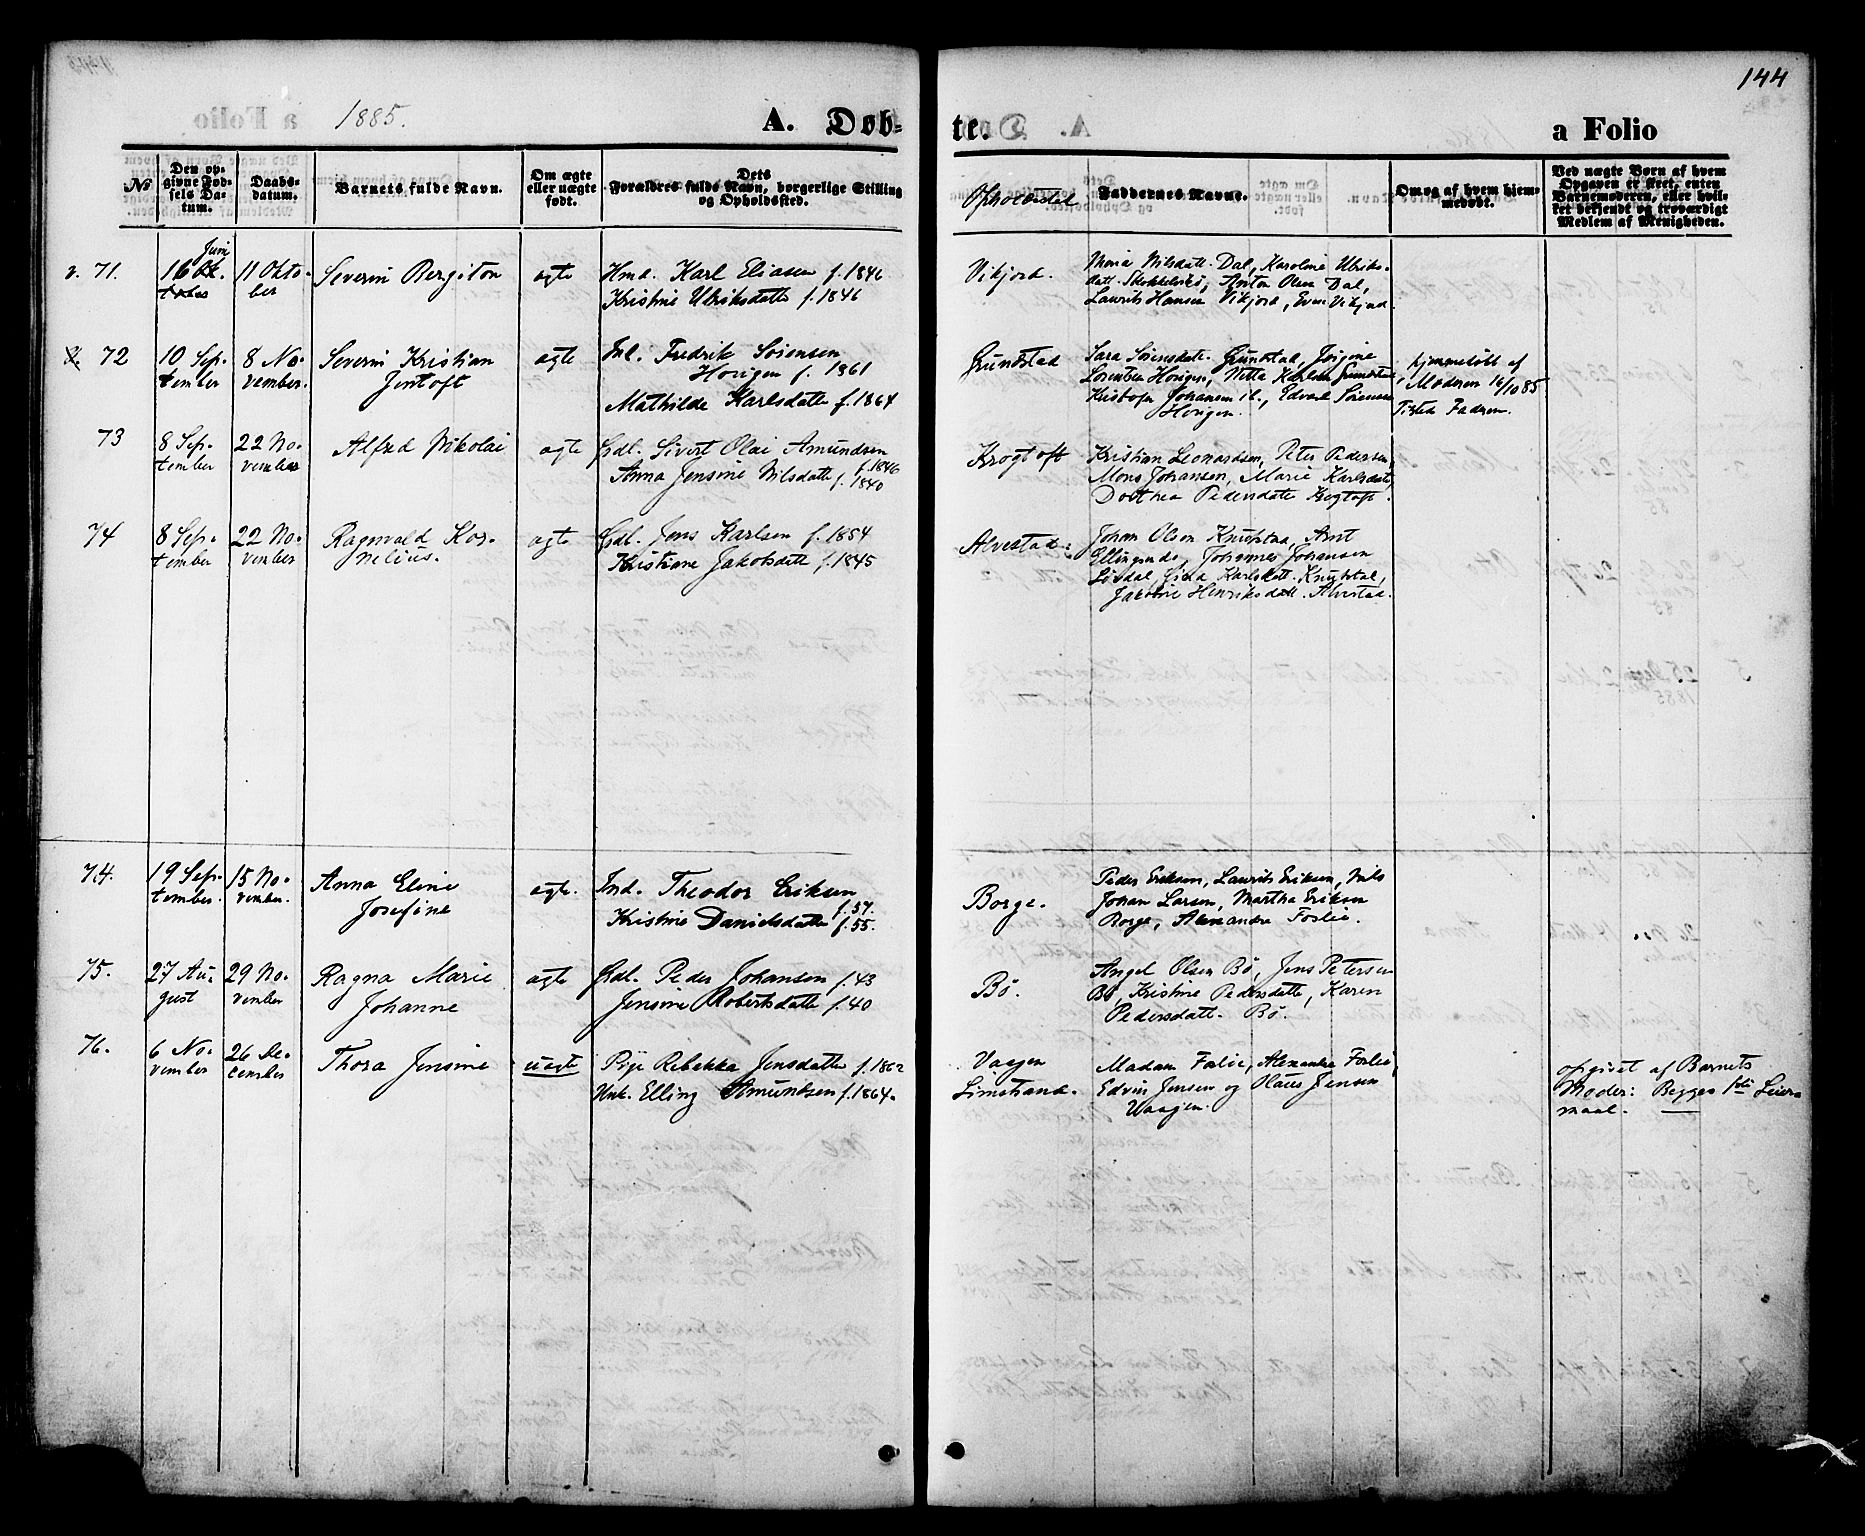 144
1885.
A. Døb-
te.
a Folio
№
Den op-
givne Fød-
sels Da-
tum.
Daabs-
datum.
Barnets fulde Navn.
Om ægte
eller uægte
født.
Dets
Forældres fulde Navn, borgerlige Stilling
og Opholdssted.
Opholdssted
Faddernes Navne.
Om og af hvem hjem-
medøbt.
Ved uægte Børn af hvem
Opgaven er skeet, enten
Barnemoderen, eller hvil-
ket bekjendt og troværdigt
Medlem af Menigheden.
71.
Juni
16 Ok-
tober
11 Okto-
ber
Severin Bergiton
ægte
Hmd. Karl Eliasen f. 1846
Kristine Ulriksdatte f. 1846
Vikjord.
Nilsdatt. Dal, Karoline Ulriks-
datt. Anton Olsen Dal,
Laurits Hansen Vikjord, Even Vikjord.
72
10 Sep-
tember
8 No-
vember.
Severin Kristian
Jentoft
ægte
Ind. Fredrik Sørensen
Horigen f. 1861
Mathilde Karlsdatte f. 1864
Grundstad
Sara Sørensdatt. Grundstad, Jørgine
Lorentsen Horigen, Netta Karlsen Grundstad,
Kristofer Johansen ib., Edvard Sørensen
Horigen.
hjemmedøbt af
Moderen 16/10 85
Tilsted Faderen.
73
8 Sep-
tember
22 No-
vember
Alfred Nikolai
ægte
Grdl. Sivert Olai Amundsen
f. 1846
Anna Jensine Nilsdatte f. 1840
Krogtoft
Kristian Leonardsen, Peter Pedersen,
Mons Johansen, Marie Karlsdatte
Dorthea Pedersdatte Krogtoft.
74
8 Sep-
tember
22 No-
vember
Ragnvald Kor-
nelius.
ægte
Grdl. Jens Karlsen f. 1854
Kristiane Jakobsdatte f. 1845
Alvestad
Johan Olson Knutstad, Arnt
Ellingsen do, Johannes Johansen
Lisdal, Karlsdatt. Knutstad,
Jakobine Henriksdatt. Alvestad.
74.
19 Sep-
tember.
15 No-
vember.
Anna Eline
Josefine
ægte.
Ind. Theodor Eriksen
f. 57.
Kristine Danielsdatte f. 55.
Borge.
Peder Eriksen, Laurits Eriksen, Nils
Johan Larsen, Martha Eriksen
Borge, Alexandra Foslie.
75.
27 Au-
gust
29 No-
vember
Ragna Marie
Johanne
ægte
Grdl. Peder Johansen f. 43
Jensine Robertsdatte f. 40
Bø.
Angel Olsen Bø, Jens Petersen
Bø, Kristine Pedersdatte, Karen
Pedersdatt. Bø.
76.
6 No-
vember
26 De-
cember
Thora Jensine
uægte
Pige Rebekka Jensdatte f. 1862
Unk. Elling Amundsen f. 1864.
Vaagen
Limstrand.
Madam Falie, Alexandra Foslie,
Edvin Jensen og Olaus Jensen
Vaagen.
opgivet af Barnets
Moder: Begges 1ste Leier-
maal.